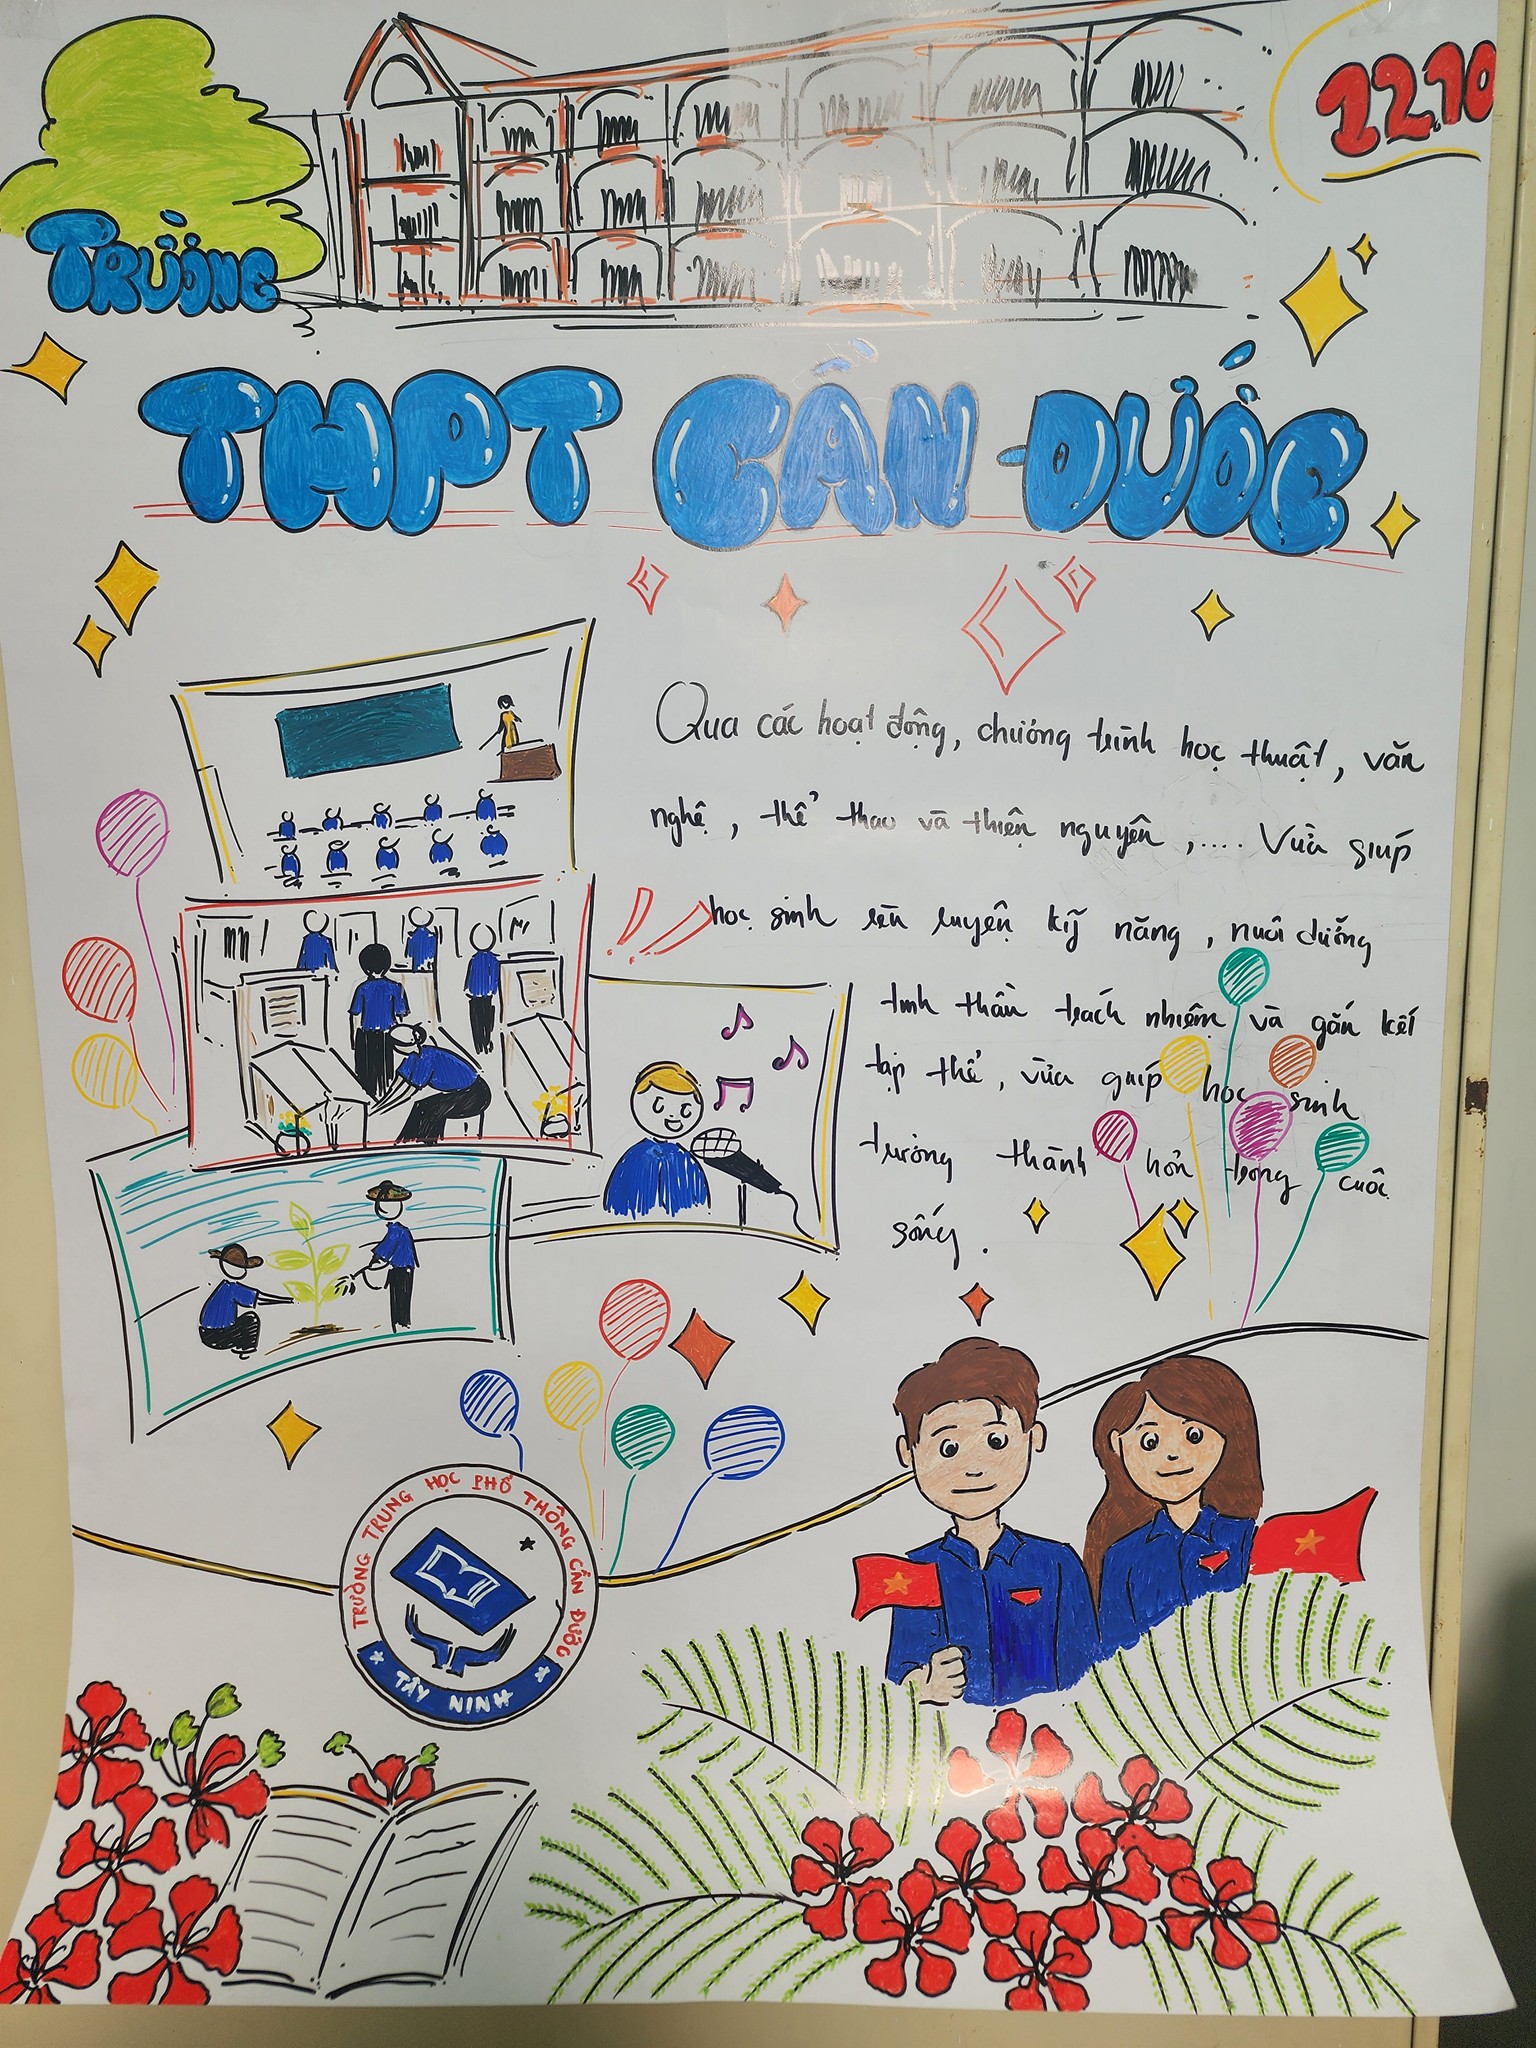 12.10
TRƯỜNG
THPT CẦN ĐƯỚC
Qua các hoạt động, chương trình học thuật, văn
nghệ, thể thao và thiện nguyện,.... Vừa giúp
học sinh rèn luyện kỹ năng, nuôi dưỡng
tinh thần trách nhiệm và gắn kết
tập thể, vừa giúp học sinh
trưởng thành hơn trong cuộc
sống.
TRƯỜNG TRUNG HỌC PHỔ THÔNG CẦN ĐƯỚC
TÂY NINH